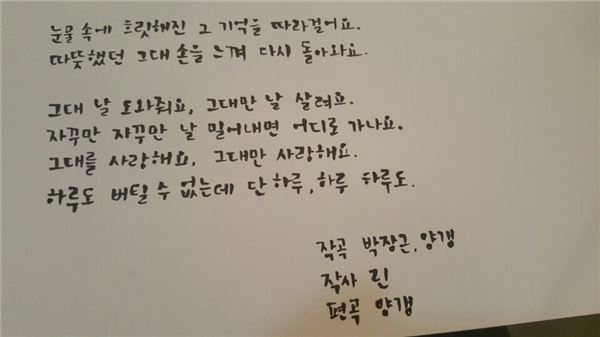 눈물 속에 흐릿해진 그 기억을 따라걸어요.
따뜻했던 그대 손을 느껴 다시 돌아와요.
그대 날 도와줘요, 그대만 날 살려요.
자꾸만 자꾸만 날 밀어내면 어디로 가나요.
그대를 사랑해요, 그대만 사랑해요.
하루도 버틸 수 없는데 단 하루, 하루 하루도.
작곡 박장근, 양갱
작사 린
편곡 양갱